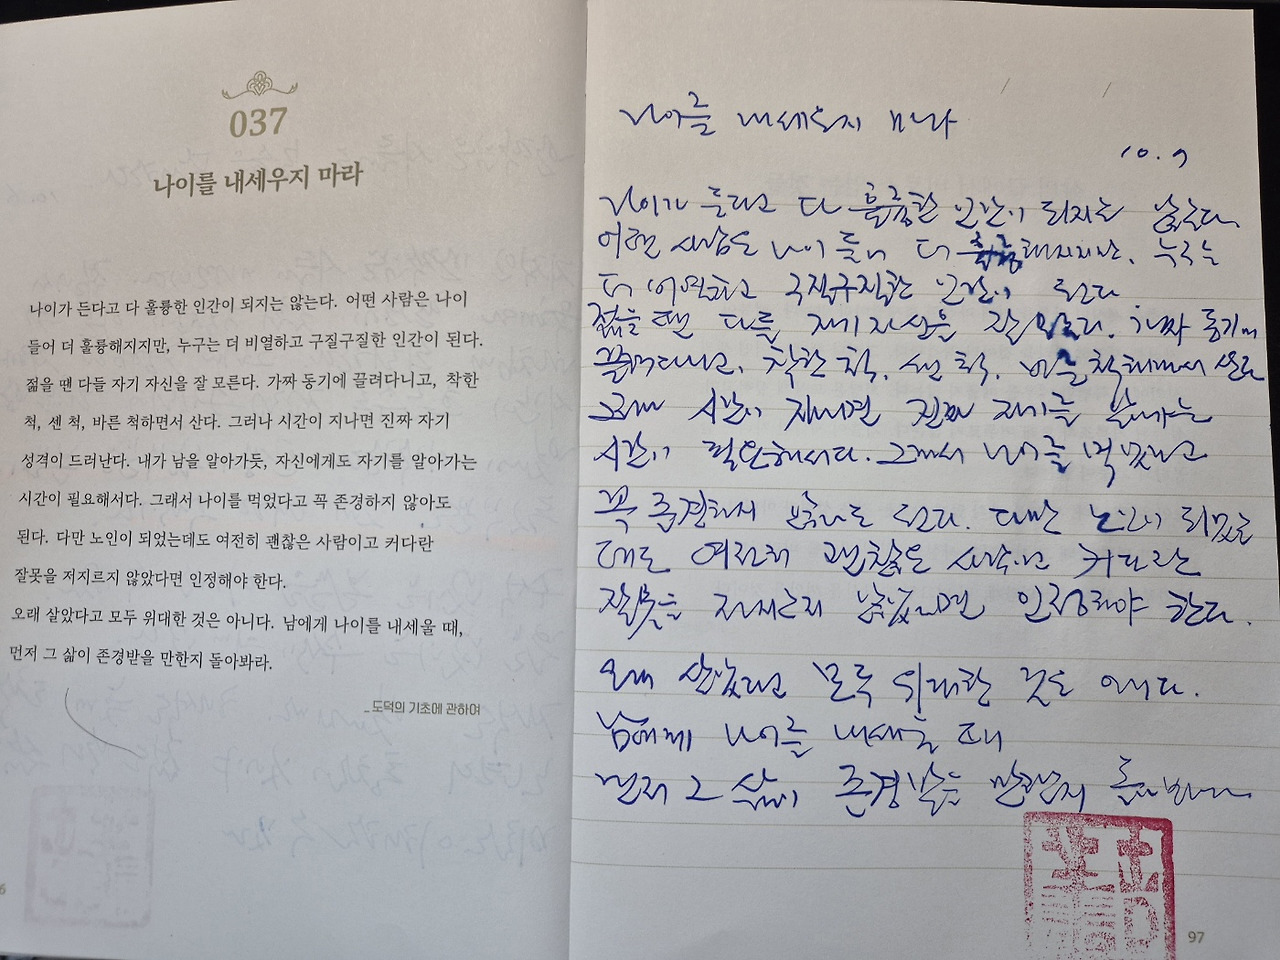 037
나이를 내세우지 마라
나이가 든다고 다 훌륭한 인간이 되지는 않는다. 어떤 사람은 나이
들어 더 훌륭해지지만, 누구는 더 비열하고 구질구질한 인간이 된다.
젊을 땐 다들 자기 자신을 잘 모른다. 가짜 동기에 끌려다니고, 착한
척, 센 척, 바른 척하면서 산다. 그러나 시간이 지나면 진짜 자기
성격이 드러난다. 내가 남을 알아가듯, 자신에게도 자기를 알아가는
시간이 필요해서다. 그래서 나이를 먹었다고 꼭 존경하지 않아도
된다. 다만 노인이 되었는데도 여전히 괜찮은 사람이고 커다란
잘못을 저지르지 않았다면 인정해야 한다.
오래 살았다고 모두 위대한 것은 아니다. 남에게 나이를 내세울 때,
먼저 그 삶이 존경받을 만한지 돌아봐라.
_ 도덕의 기초에 관하여
나이를 내세우지 마라
10. 9
나이가 든다고 다 훌륭한 인간이 되지는 않는다
어떤 사람은 나이 들어 더 훌륭해지지만, 누구는
더 비열하고 구질구질한 인간이 된다.
젊을 땐 다들 자기 자신을 잘 모른다. 가짜 동기에
끌려다니고, 착한 척, 센 척, 바른 척하면서 산다
그러나 시간이 지나면 진짜 자기를 알아가는
시간이 필요해서다. 그래서 나이를 먹었다고
꼭 존경하지 않아도 된다. 다만 노인이 되었는
데도 여전히 괜찮은 사람이고 커다란
잘못을 저지르지 않았다면 인정해야 한다.
오래 살았다고 모두 위대한 것은 아니다.
남에게 나이를 내세울 때
먼저 그 삶이 존경받을 만한지 돌아봐라
97